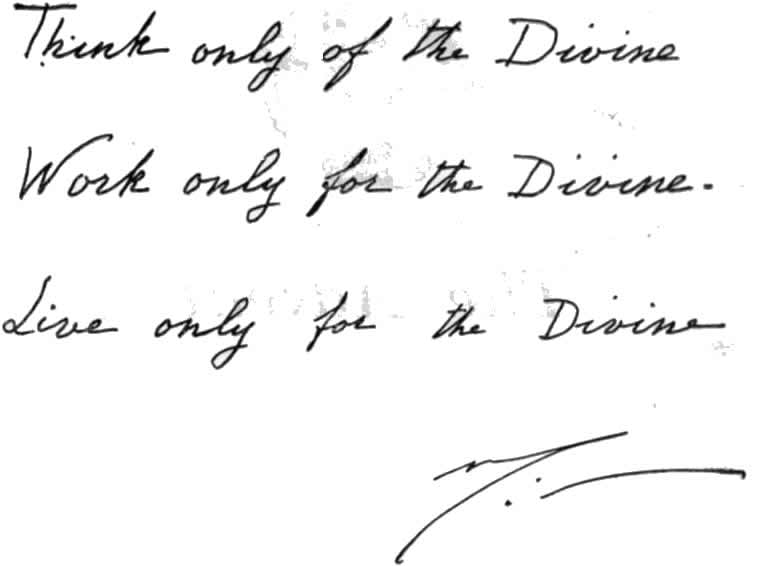 Think only of the Divine
Work only for the Divine.
Live only for the Divine